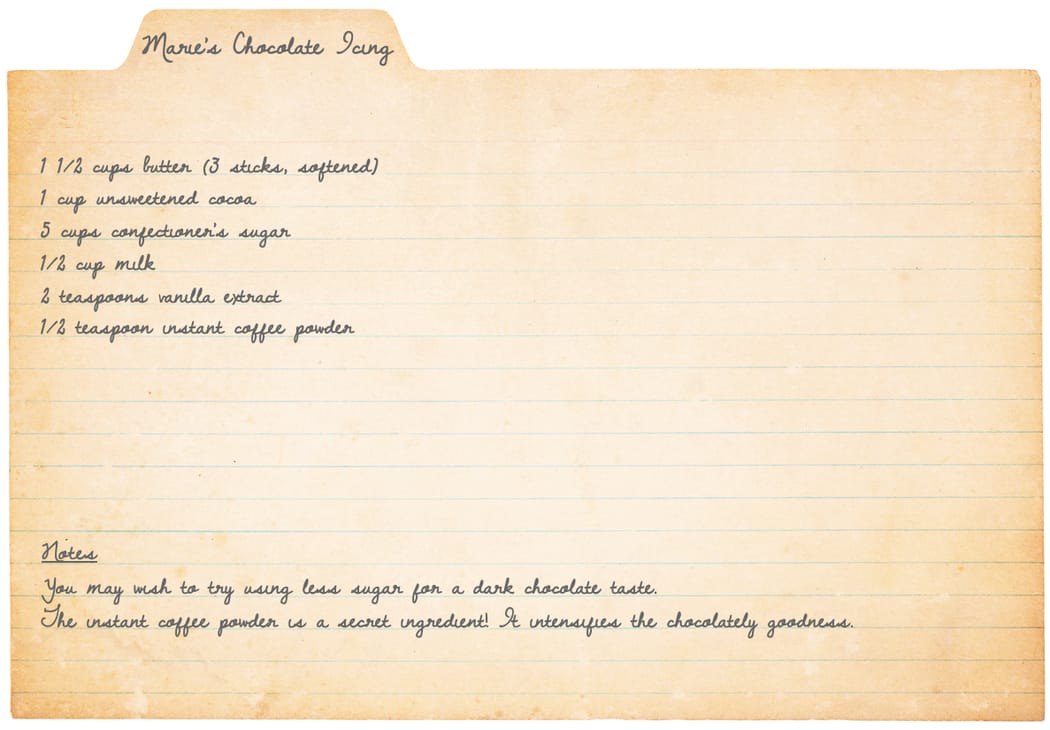 Marie's Chocolate Icing
1 1/2 cups butter (3 sticks, softened)
1 cup unsweetened cocoa
5 cups confectioner's sugar
1/2 cup milk
2 teaspoons vanilla extract
1/2 teaspoon instant coffee powder
Notes
You may wish to try using less sugar for a dark chocolate taste.
The instant coffee powder is a secret ingredient! It intensifies the chocolately goodness.